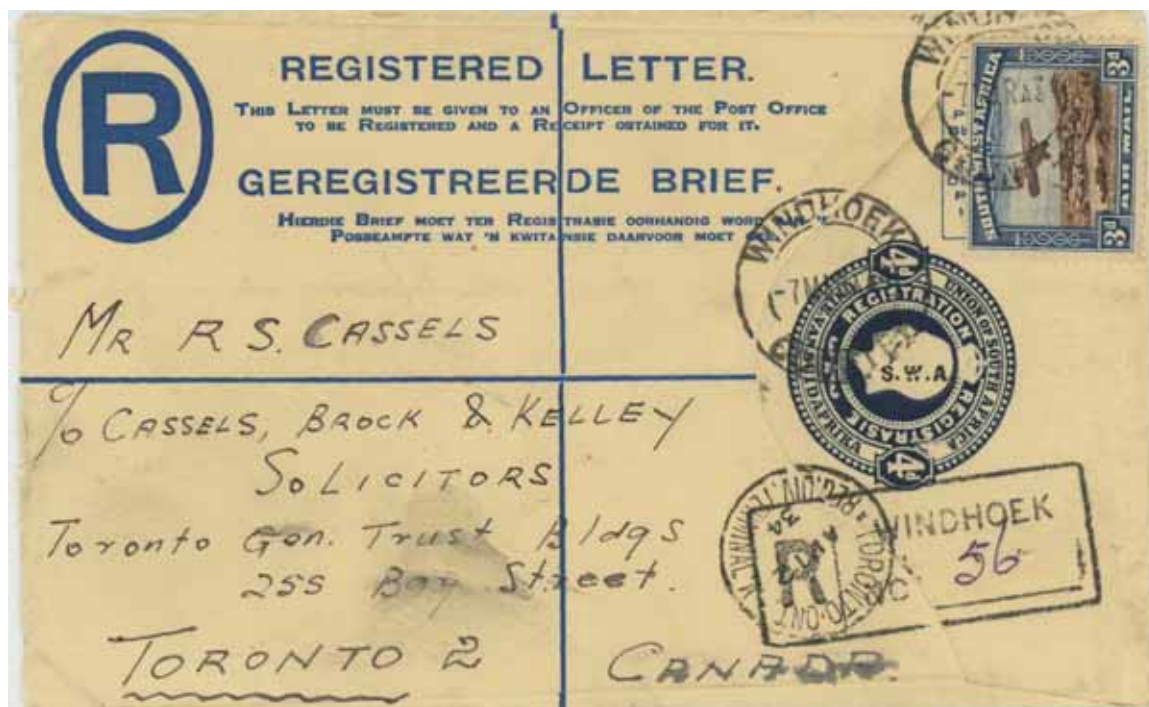 R
REGISTERED LETTER.
THIS LETTER MUST BE GIVEN TO AN OFFICER OF THE POST OFFICE
TO BE REGISTERED AND A RECEIPT OBTAINED FOR IT.
GEREGISTREERDE BRIEF.
HIERDIE BRIEF MOET TER REGISTRASIE OORHANDIG WORD
POSBEAMPTE WAT 'N KWITANSIE DAARVOOR MOET
3d 3d
SOUTH WEST AFRICA
AIR MAIL
WINDHOEK
4d
REGISTRATION
UNION OF SOUTH AFRICA
S.W.A
REGISTRASIE
4d
MR R S. CASSELS
c/o CASSELS, BROCK & KELLEY
SOLICITORS
Toronto Gen. Trust Bldgs
255 Bay Street.
TORONTO 2 CANADA.
TORONTO, ONT.
R
34
WINDHOEK
56